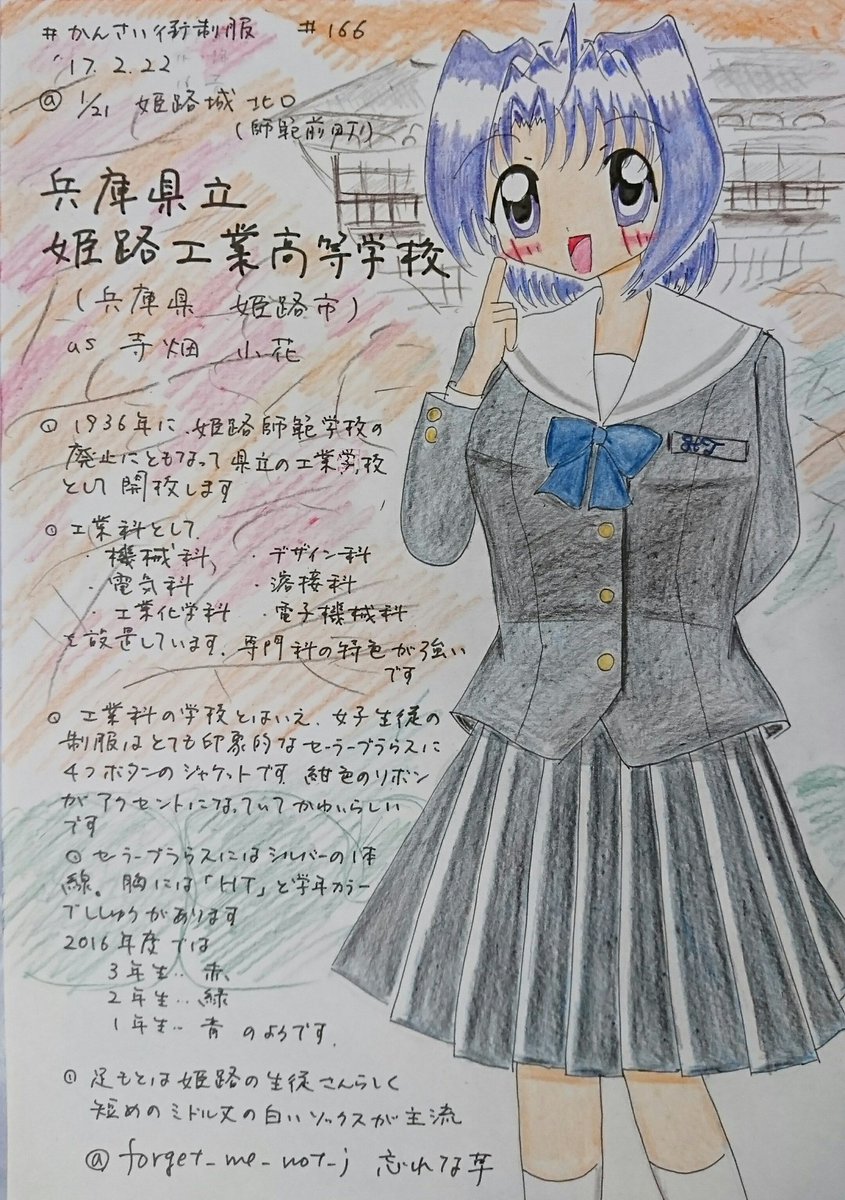 #かんさい街制服 #166
'17.2.22
@ 1/21 姫路城 北口
(師範前町)
兵庫県立
姫路工業高等学校
(兵庫県 姫路市)
as 寺畑 小花
1936年に、姫路師範学校の
廃止にともなって県立の工業学校
として開校します
工業科として
・機械科、 ・デザイン科
・電気科 ・溶接科
・工業化学科 ・電子機械科
を設置しています。専門科の特色が強い
です
工業科の学校とはいえ、女子生徒の
制服はとても印象的なセーラーブラウスに
4つボタンのジャケットです 紺色のリボン
がアクセントになっていてかわいらしい
です
セーラーブラウスにはシルバーの1本
線。胸には「HT」と学年カラー
でししゅうがあります
2016年度では
3年生‥赤、
2年生‥緑
1年生‥青 のようです。
足もとは姫路の生徒さんらしく
短めのミドル丈の白いソックスが主流
@forget_me_not_j 忘れな草
HT